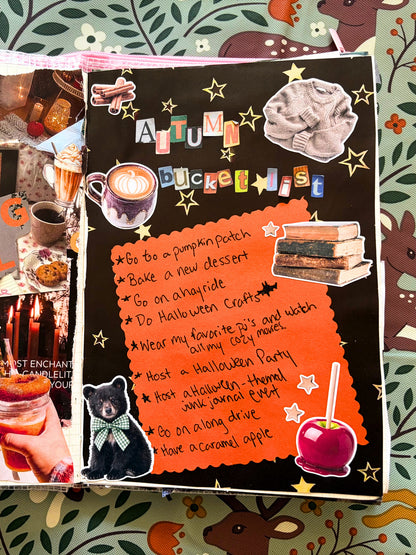 AUTUMN
bucket list
★Go to a pumpkin patch
★Bake a new dessert
★Go on a hayride
★Do Halloween Crafts
★Wear my favorite pj's and watch
all my cozy movies
★Host a Halloween Party
★Host a Halloween-themed
junk journal event
★Go on a long drive
★Have a caramel apple
MOST ENCHANT
CANDLELIT
YOUR